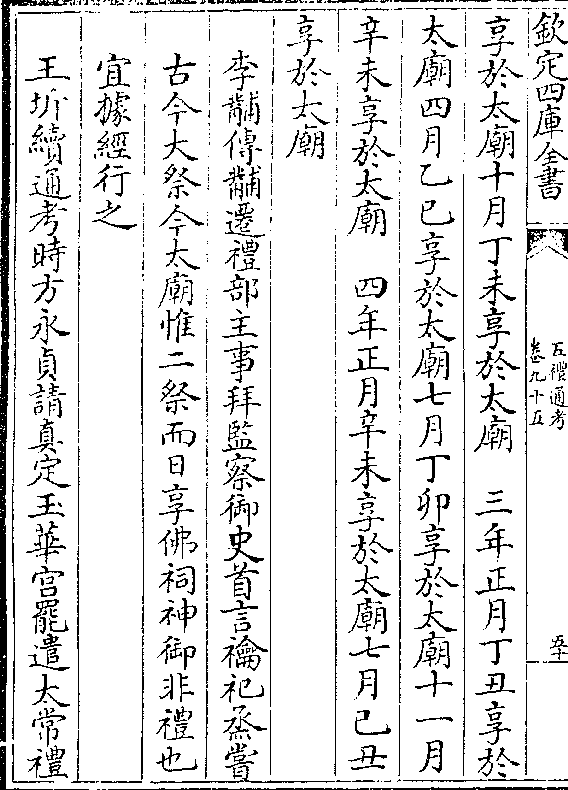 欽定四庫全書
五禮通考
卷九十五
五十
享於太廟十月丁未享於太廟　三年正月丁丑享於
太廟四月乙巳享於太廟七月丁卯享於太廟十一月
辛未享於太廟　四年正月辛未享於太廟七月己丑
享於太廟
李黼傳黼遷禮部主事拜監察御史首言禴祀烝嘗
古今大祭今太廟惟二祭而日享佛祠神御非禮也
宜據經行之
王圻續通考時方永貞請真定玉華宫罷遣太常禮